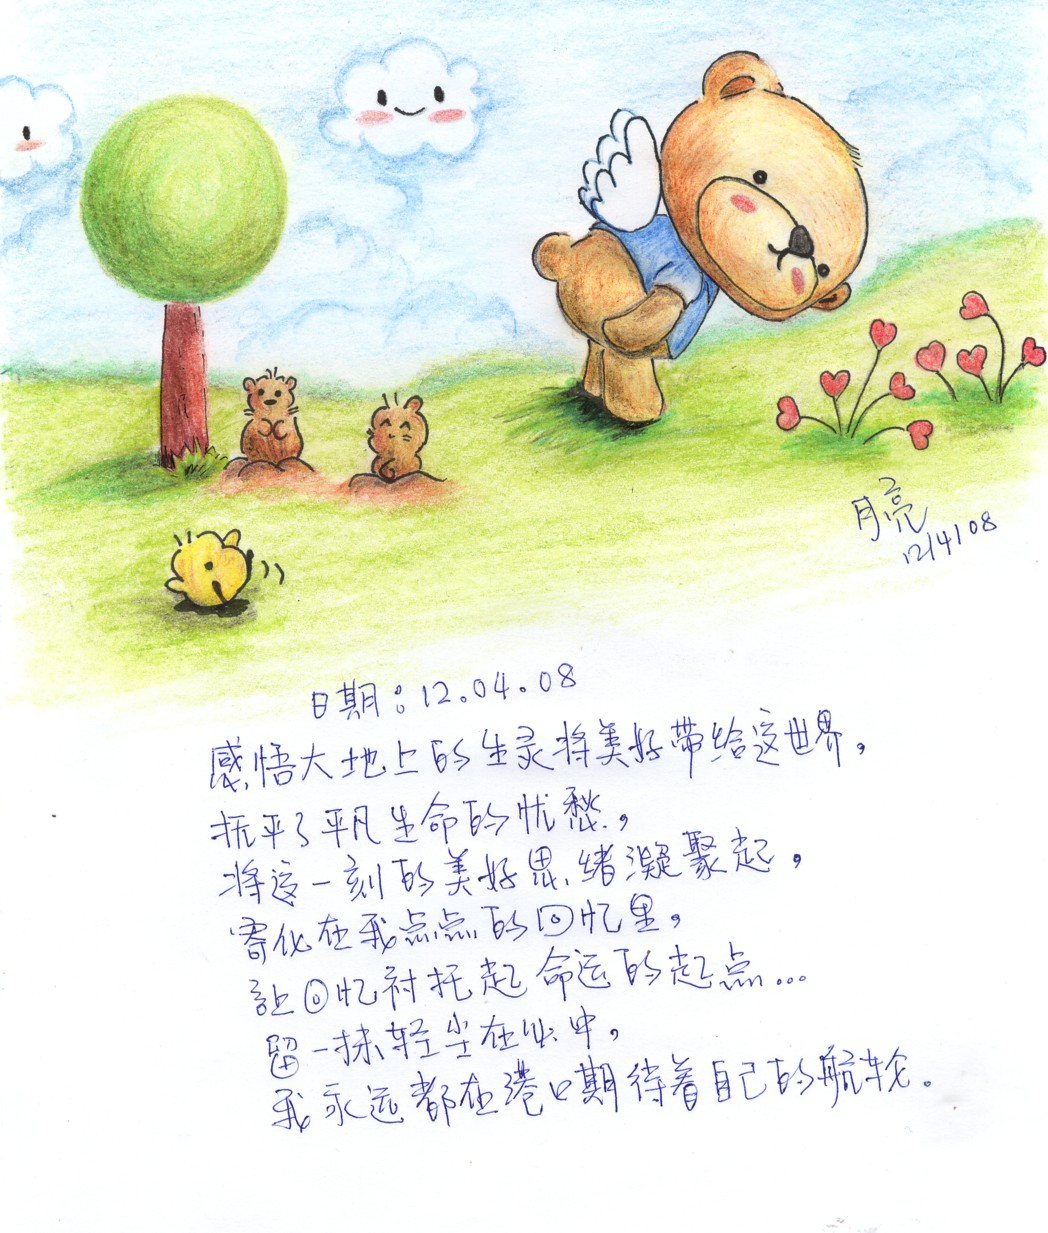 月亮
12/4/08
日期：12.04.08
感悟大地上的生灵将美好带给这世界，
抚平了平凡生命的忧愁，
将这一刻的美好思绪凝聚起，
寄化在我点点的回忆里，
让回忆衬托起命运的起点...
留一抹轻尘在心中，
我永远都在港口期待着自己的航轮。